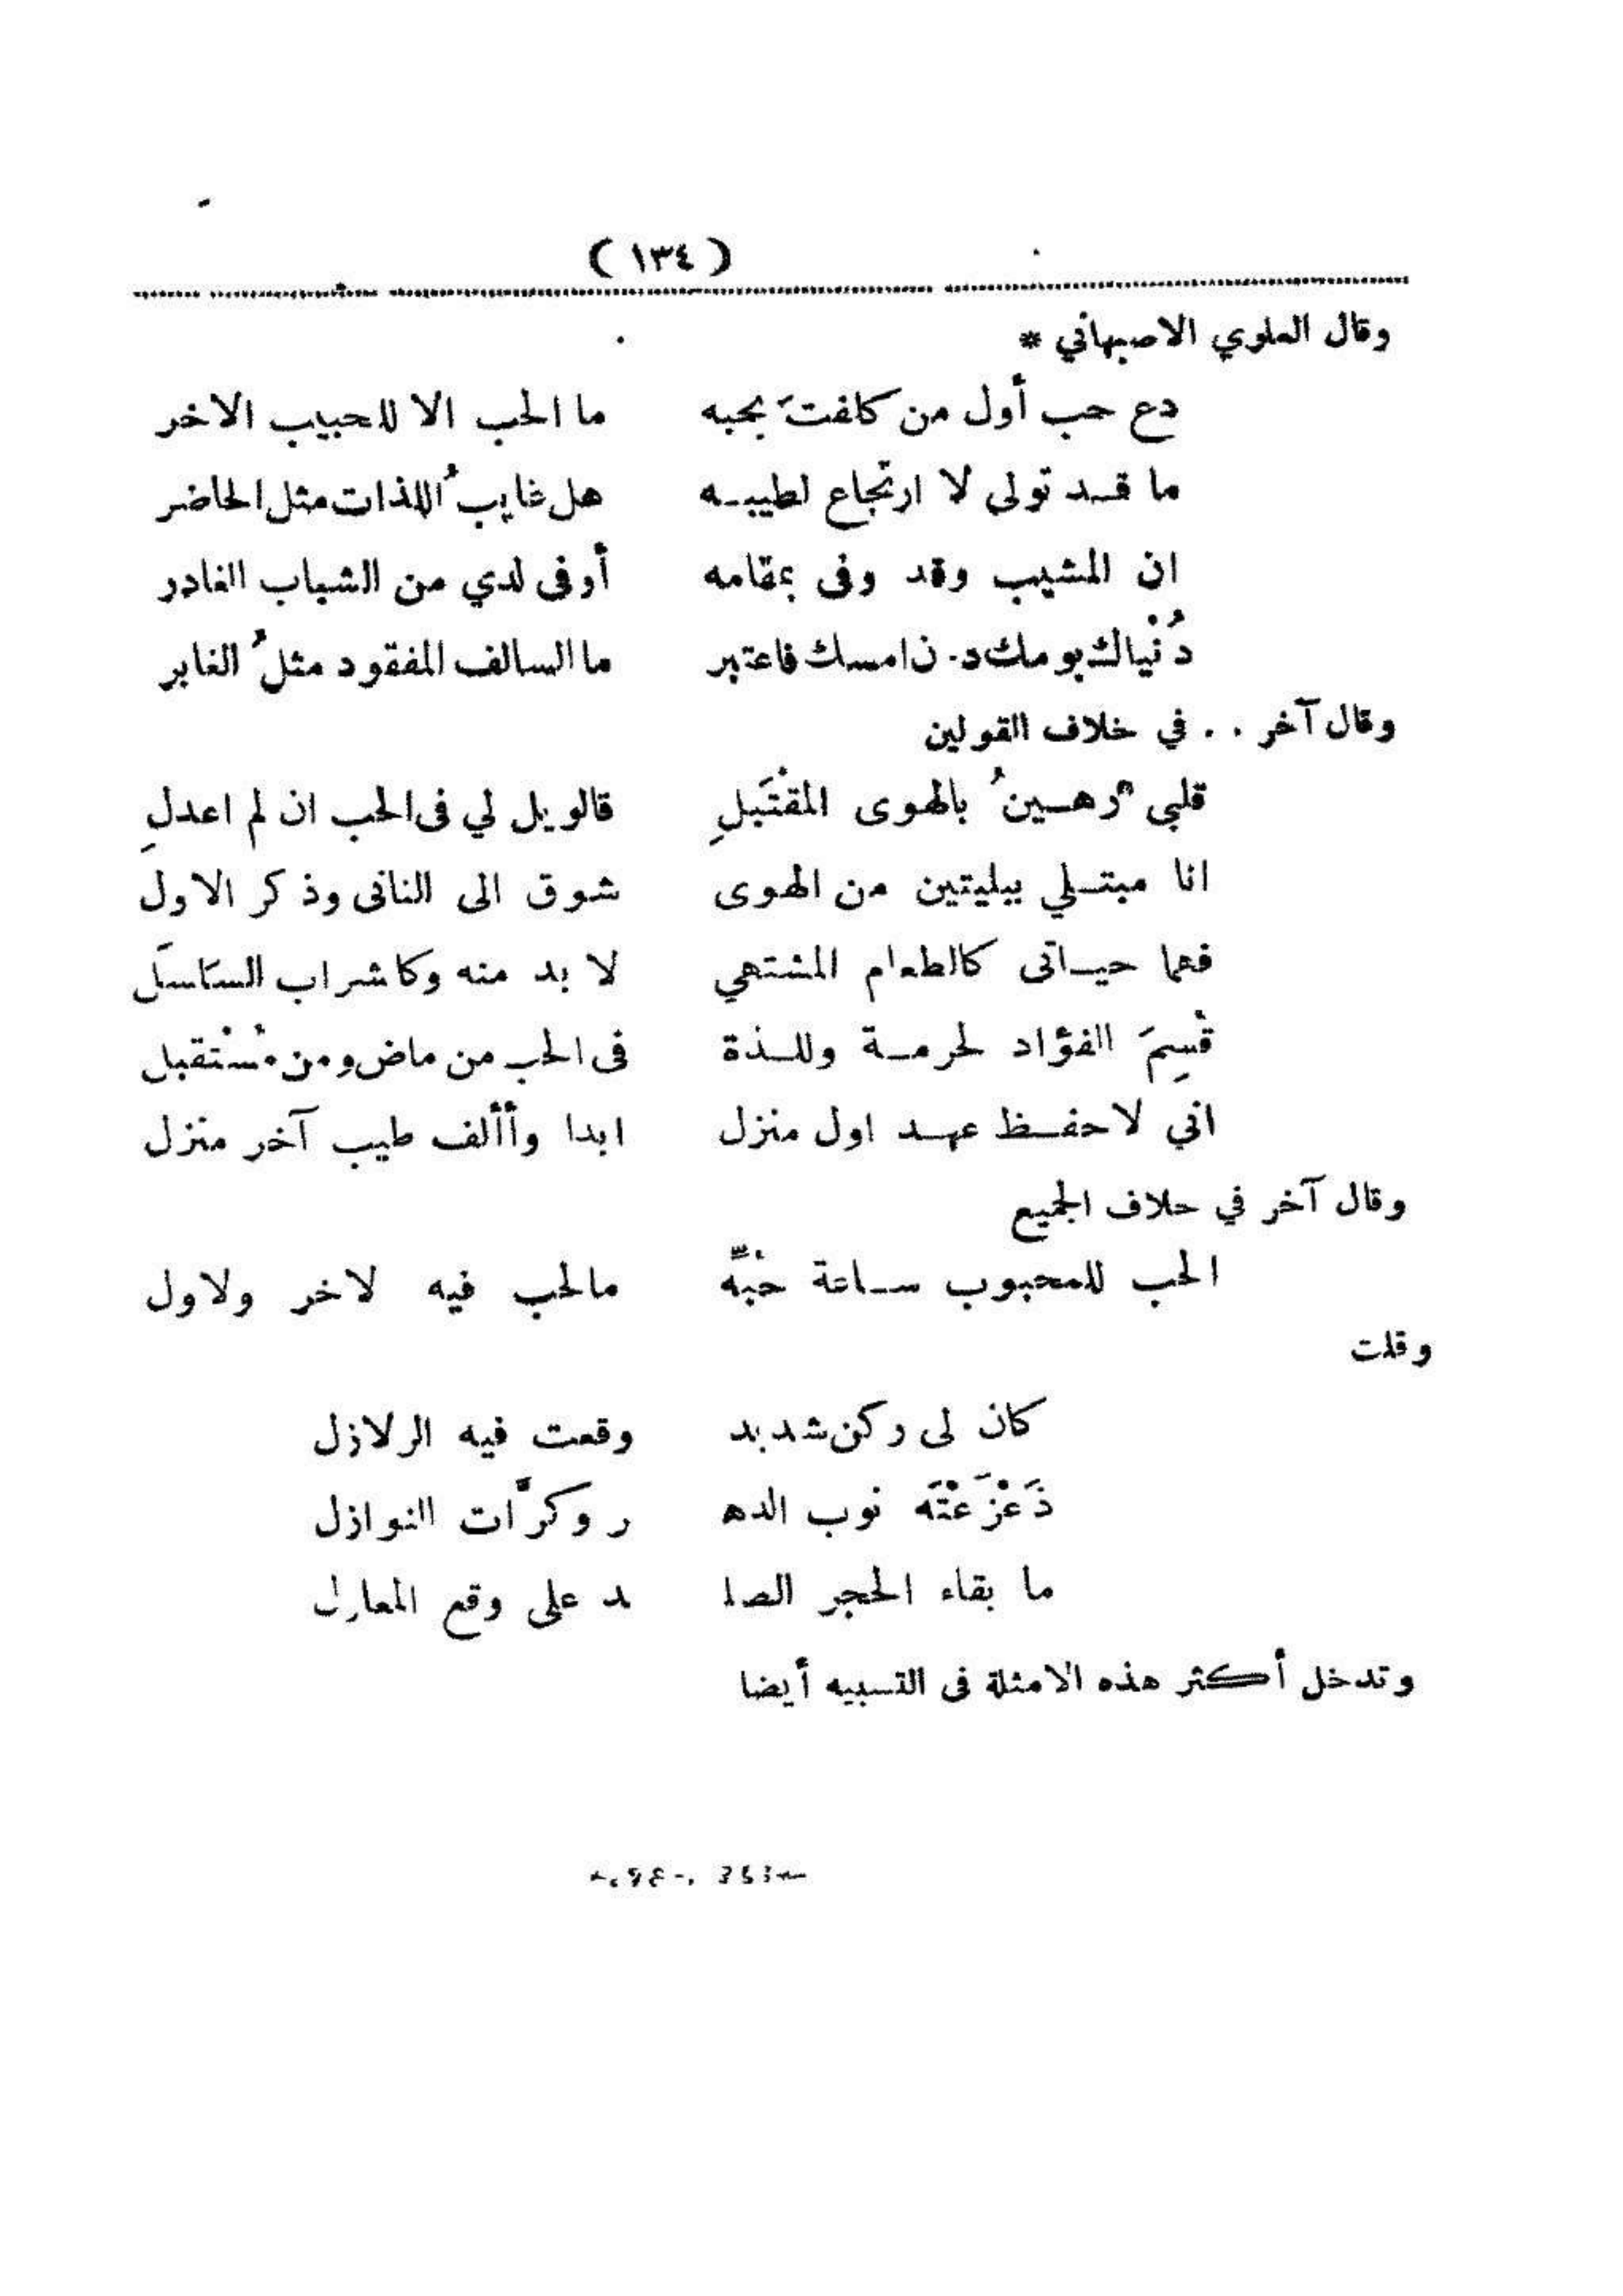 ( ١٣٤ )
وقال العلوي الاصبهاني *
دع حب أول من كلفتَ بحبه ما الحب الا للحبيب الاخر
ما قد تولى لا ارتجاع لطيبه هل غايبُ اللذات مثل الحاضر
ان المشيب وقد وفى بمقامه أوفى لدي من الشباب الغادر
دُنْياك يومك دون امسك فاعتبر ما السالف المفقود مثلُ الغابر
وقال آخر . . في خلاف القولين
قلبي رهينُ بالهوى المقْتَبلِ فالويل لي فى الحب ان لم اعدلِ
انا مبتلي ببليتين من الهوى شوق الى الثانى وذكر الاول
فهما حياتى كالطعام المشتهي لا بد منه وكالشراب السَلسَل
قُسِمَ الفؤاد لحرمة وللذة فى الحب من ماض ومن مُسْتقبل
اني لاحفظ عهد اول منزل ابدا وأألف طيب آخر منزل
وقال آخر في خلاف الجميع
الحب للمحبوب ساعة حُبِّه مالحب فيه لاخر ولاول
وقلت
كان لى ركن شديد وقعت فيه الزلازل
ذَعْزَعْتَه نوب الده ر وكرَّات النوازل
ما بقاء الحجر الصل د على وقع المعاول
وتدخل أكثر هذه الامثلة فى التشبيه أيضا